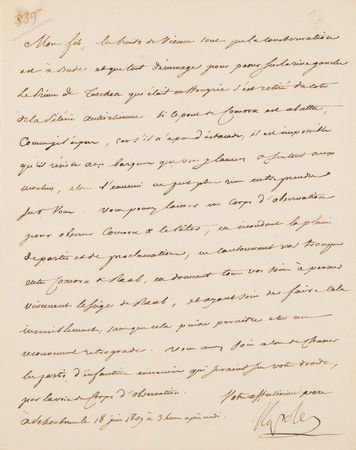 339
Mon fils, les bruits de Vienne sont que la consternation
est à Bude et que tout déménage pour passer sur la rive gauche
Le Prince de Taschen qui était en Hongrie s'est retiré du côté
de la Galicie autrichienne. Si le pont de Comorn est abattu,
comme je l'espère, car s'il n'a pas d'estacade, il est impossible
qu'il résiste aux barques que vous lancerez & surtout aux
moulins, alors l'ennemi ne peut plus rien entreprendre
sur vous. Vous pouvez laisser un Corps d'observation
pour observer Comorn & le Palatin, en inondant la plaine
de partis et de proclamations, en cantonnant vos troupes
entre Comorn & Raab, en donnant tous vos soins à pousser
vivement le siège de Raab, et ayant soin de faire cela
insensiblement, sans que cela puisse paraître être un
mouvement rétrograde. Vous aurez soin alors de chasser
les partis d'infanterie ennemie qui seraient sur votre droite,
par la voie de Corps d'observation.
Votre affectionné père
à Schönbrunn le 18 juin 1809 à 3 heures après midi.
Napole